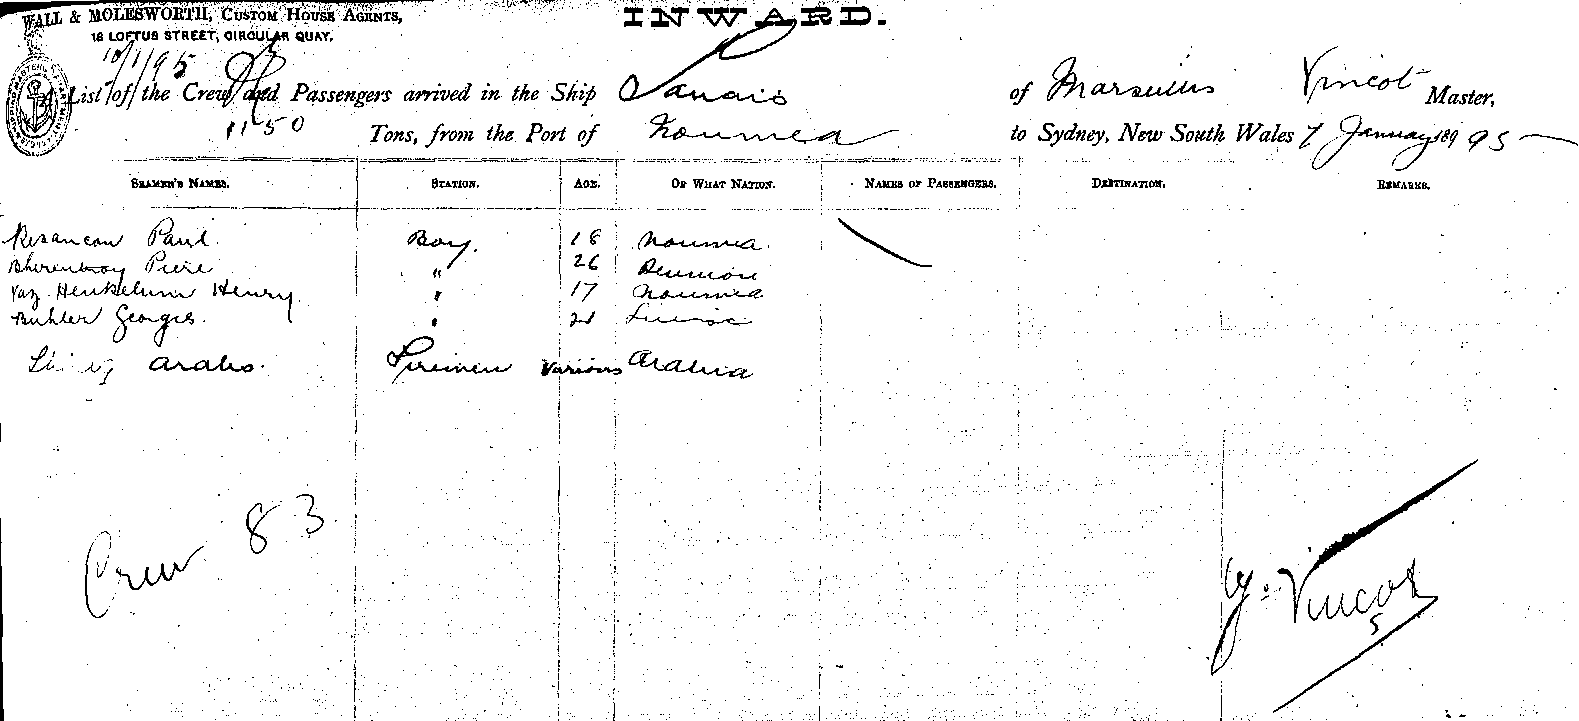 WALL & MOLESWORTH, CUSTOM HOUSE AGENTS,
18 LOFTUS STREET, CIRCULAR QUAY.
INWARD.
10/1/95
List of the Crew and Passengers arrived in the Ship Tanais of Marseilles Vincot Master,
1150 Tons, from the Port of Noumea to Sydney, New South Wales 7 January 189 95
SEAMEN'S NAMES. STATION. AGE. OF WHAT NATION. NAMES OF PASSENGERS. DESTINATION. REMARKS.
Besancon Paul Boy. 18 Noumea
Piere " 26 Reunion
Henkelum Henry " 17 Noumea
Buhler Georges "
Arabs. Firemen Various Arabia
Crew 83
Vincot